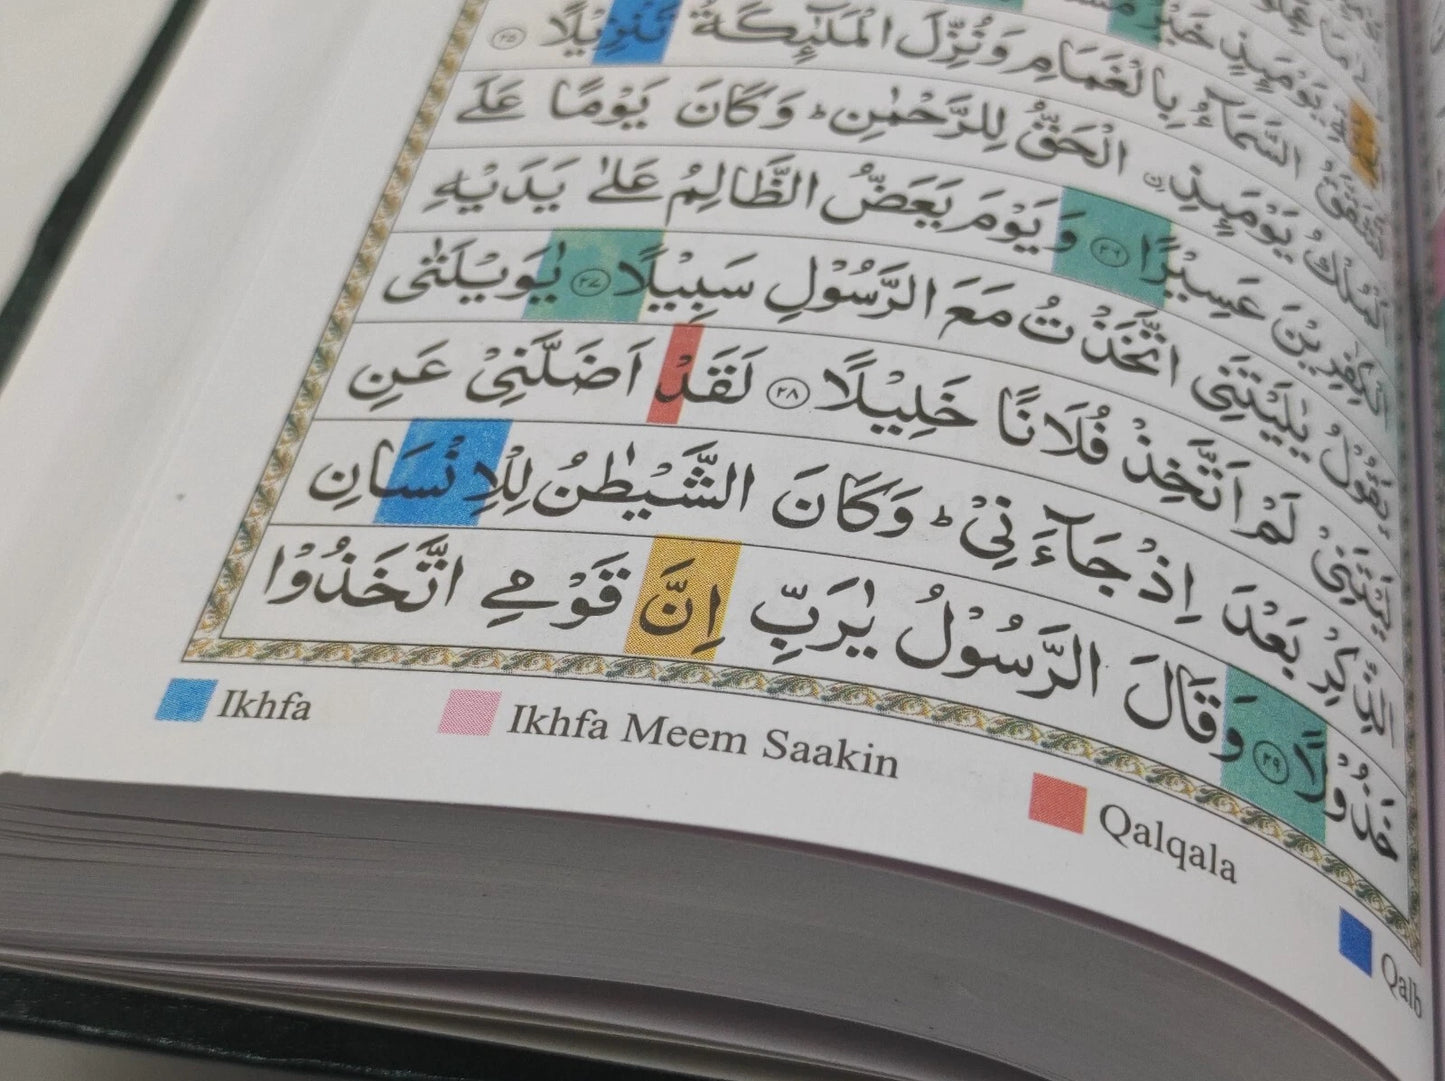 يَوْمَئِذٍ خَيْرٌ
تَشَقَّقُ السَّمَآءُ بِالْغَمَامِ وَنُزِّلَ الْمَلٰٓئِكَةُ تَنْزِيْلًا ﴿۲۵﴾
اَلْمُلْكُ يَوْمَئِذِ ِۨالْحَقُّ لِلرَّحْمٰنِ ؕ وَكَانَ يَوْمًا عَلَى
الْكٰفِرِيْنَ عَسِيْرًا ﴿۲۶﴾ وَيَوْمَ يَعَضُّ الظَّالِمُ عَلٰى يَدَيْهِ
يَقُوْلُ يٰلَيْتَنِى اتَّخَذْتُ مَعَ الرَّسُوْلِ سَبِيْلًا ﴿۲۷﴾ يٰوَيْلَتٰى
لَيْتَنِىْ لَمْ اَتَّخِذْ فُلَانًا خَلِيْلًا ﴿۲۸﴾ لَقَدْ اَضَلَّنِىْ عَنِ
الذِّكْرِ بَعْدَ اِذْ جَآءَنِىْ ؕ وَكَانَ الشَّيْطٰنُ لِلْاِنْسَانِ
خَذُوْلًا ﴿۲۹﴾ وَقَالَ الرَّسُوْلُ يٰرَبِّ اِنَّ قَوْمِى اتَّخَذُوْا
Ikhfa Ikhfa Meem Saakin Qalqala Qalb